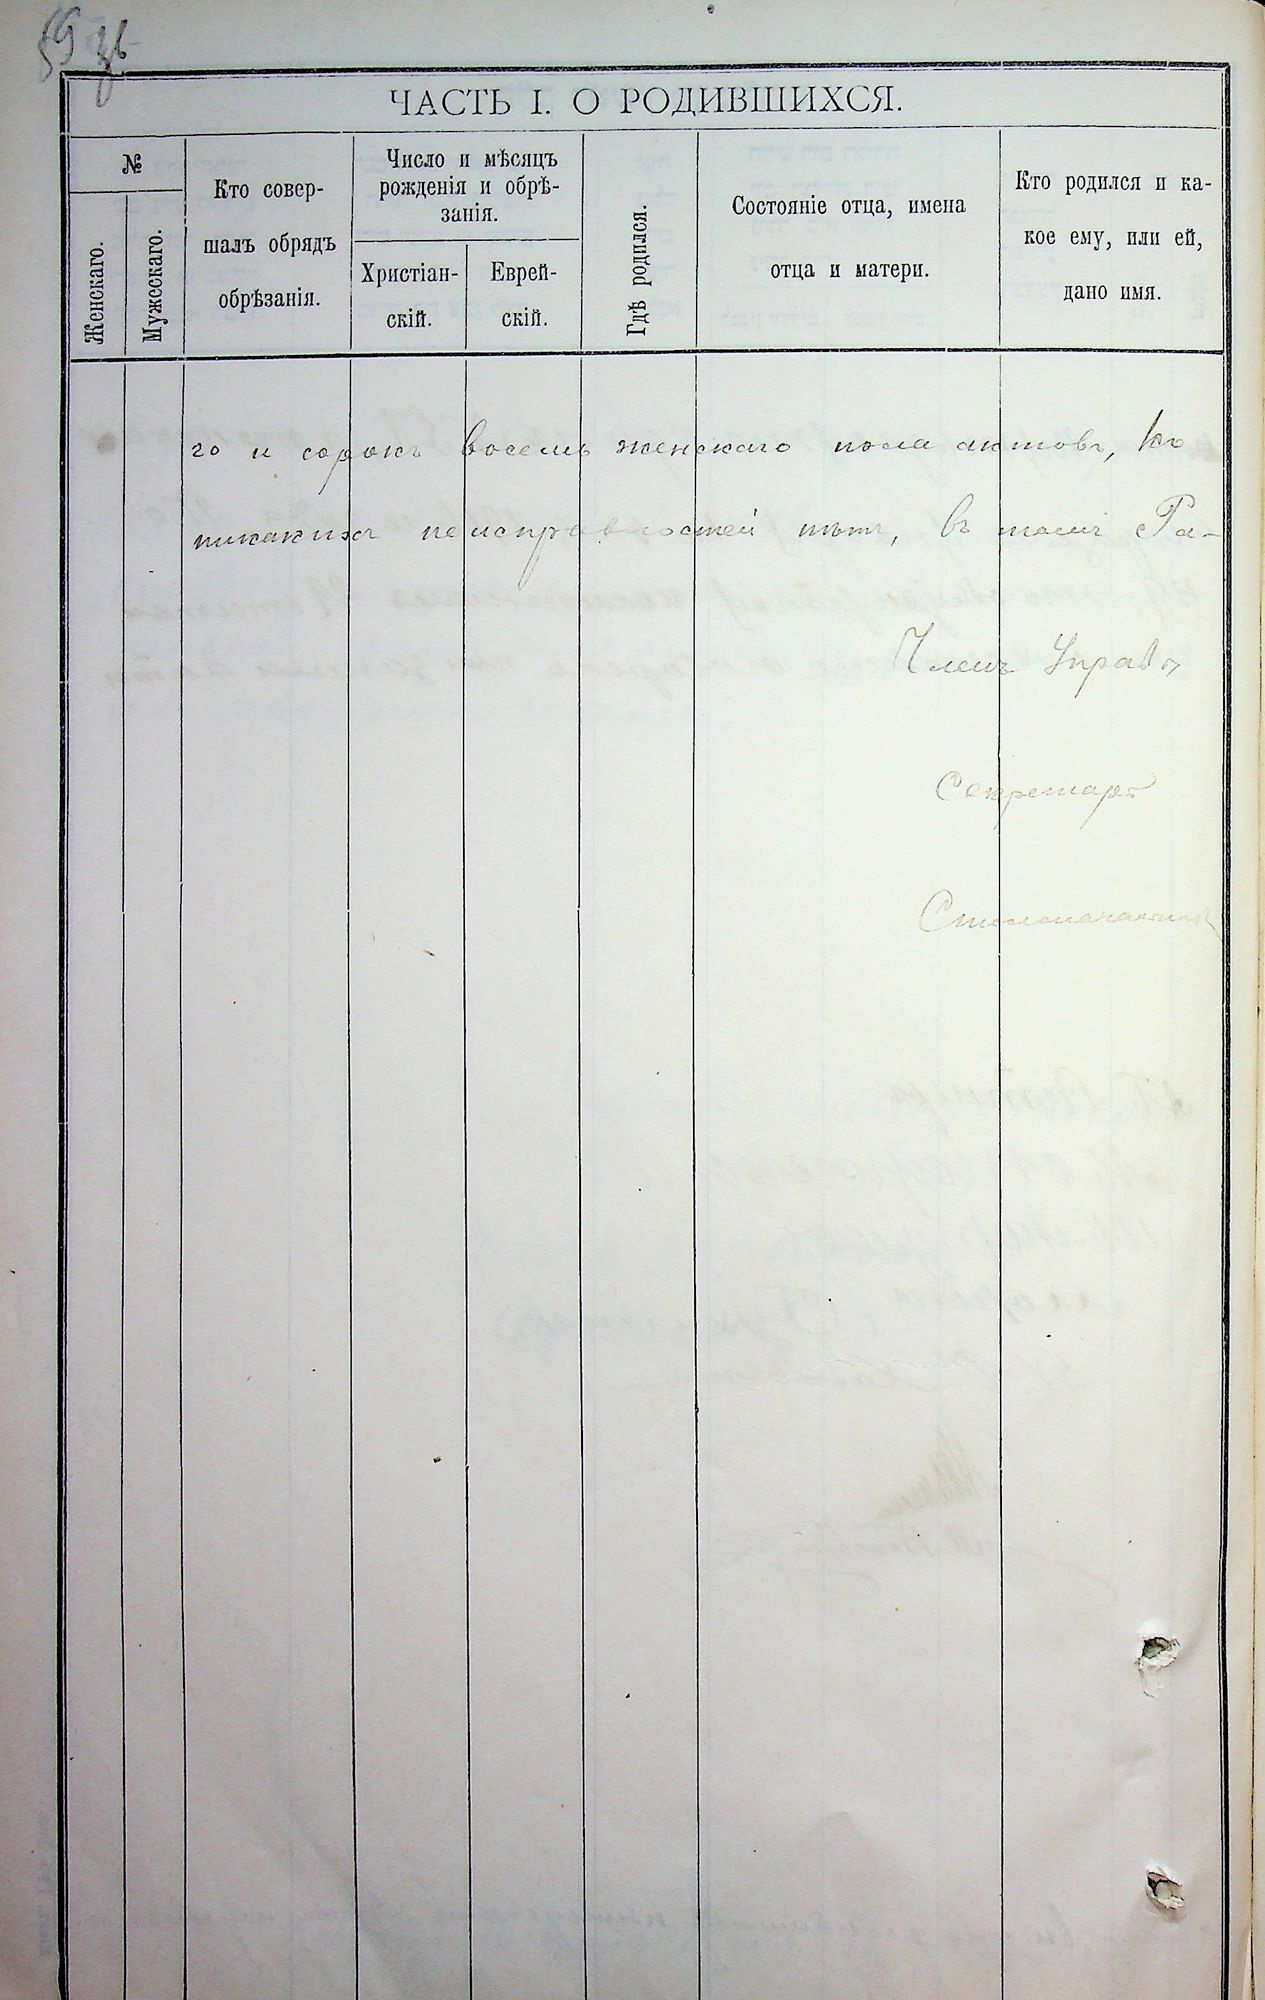 59 зв
ЧАСТЬ I. О РОДИВШИХСЯ.
№
Женскаго.
Мужескаго.
Кто совер-
шалъ обрядъ
обрѣзанія.
Число и мѣсяцъ
рожденія и обрѣ-
занія.
Христіан-
скій.
Еврей-
скій.
Гдѣ родился.
Состояніе отца, имена
отца и матери.
Кто родился и ка-
кое ему, или ей,
дано имя.
го и сорокъ восемь женскаго пола актовъ,
никакихъ неисправностей нѣтъ, въ томъ Ра-
Членъ Управы
Секретарь
Столоначальникъ